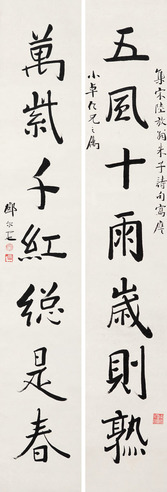 集宋陸放翁朱子詩句寫應
五風十雨歲則熟
小卓仁兄之屬
萬紫千紅總是春
鄧